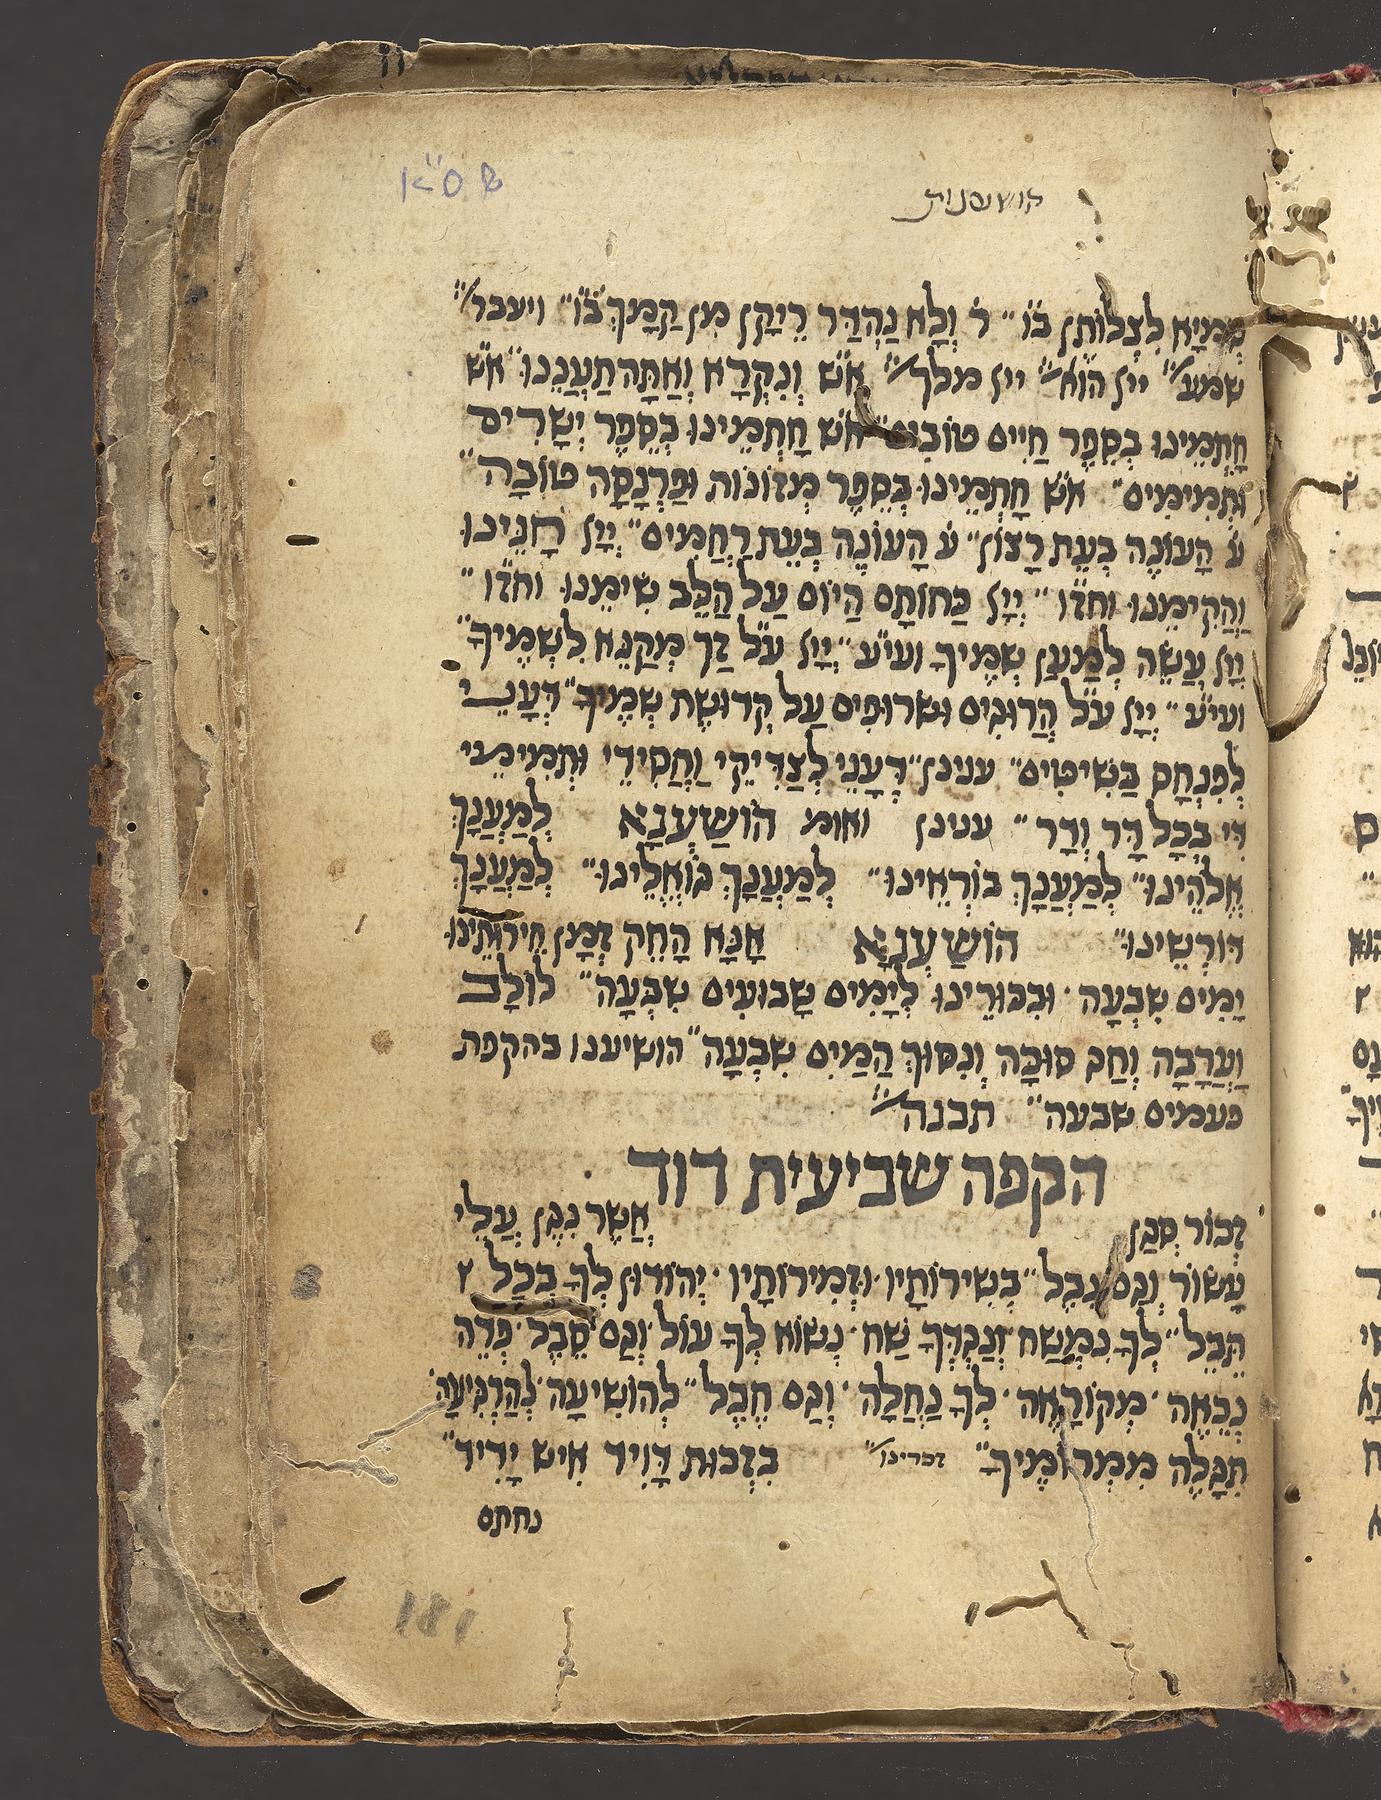 הושענות
שְׁמַיָּא לִצְלוֹתִין בו״ ר׳ וְלָא נַהְדַּר רֵיקָן מִן קַמָּךְ בו״ ויעבר
שמע״ ייי הוא״ ייי מלך״ אש וְנִקְרָא וְאַתָּה תַעֲנֵנוּ״ אש
חָתְמֵינוּ בְסֵפֶר חַיִּים טוֹבִים״ אש חָתְמֵינוּ בְסֵפֶר יְשָׁרִים
וּתְמִימִים״ אש חָתְמֵינוּ בְּסֵפֶר מְזוֹנוֹת וּפַרְנָסָה טוֹבָה״
ע׳ הָעוֹנֶה בְעֵת רָצוֹן״ ע׳ הָעוֹנֶה בְּעֵת רַחֲמִים״ יְיָ חָנֵּינוּ
וַהֲקִימֵנוּ וחזו״ יְיָ כַּחוֹתָם הַיּוֹם עַל הַלֵּב שִׂימֵנוּ וחזו״
יְיָ עֲשֵׂה לְמַעַן שְׁמֶיךָ ועיע״ יְיָ על זַךְ מְקַנֵּא לִשְׁמֶיךָ״
ועיע״ יְיָ על הֲרוּגִים וּשְׂרוּפִים עַל קְדוּשַּׁת שְׁמֶיךָ״ דְּעָנֵי
לְפִנְחָס בַּשִּׁיטִים״ ענינן״ דְּעָנֵי לְצַדִּיקֵי וַחֲסִידֵי וּתְמִימֵי
דִּי בְּכָל דָּר וְדָר״ ענינן ואומ׳ הוֹשַׁעְנָא לְמַעֲנָךְ
אֱלֹהֵינוּ״ לְמַעֲנָךְ בּוֹרְאֵינוּ״ לְמַעֲנָךְ גּוֹאֲלֵינוּ״ לְמַעֲנָךְ
דּוֹרְשֵׁינוּ״ הוֹשַׁעְנָא אָנָּא הָחֵק זְמָן חֵירוּתֵינוּ
יָמִים שִׁבְעָה׳ וּבִכּוּרֵינוּ לְיָמִים שָׁבוּעִים שִׁבְעָה״ לוּלָב
וַעֲרָבָה וְחַג סוּכָּה וְנִסּוּךְ הַמַּיִם שִׁבְעָה״ הושיענו בהקפת
פעמים שבעה״ תבנה״
הקפה שביעית דוד
זְכוֹר סְגַן אֲשֶׁר נִגֵּן עֲלֵי
עָשׂוֹר וְגַם נֵבֶל״ בְּשִׁירוֹתָיו׳ וּזְמִירוֹתָיו׳ יְהוֹדוּן לְךָ בְּכָל
תֵּבֵל״ לְךָ נִמְשַׁח וְנֶגְדְּךָ שַׁח׳ נְשׂוֹא לְךָ עוֹל׳ וְגַם סֵבֶל׳ פְּדֵה
נִכְאֶה׳ מְקוֹרָאֶה׳ לְךָ נַחֲלָה׳ וְגַם חֶבֶל״ לְהוֹשִׁיעָה׳ לְהַרְגִּיעָה
תִּגָּלֶה מִמְּרוֹמֶיךָ״ זכרינו״ בִּזְכוּת דָּוִיד אִישׁ יָדִיד״
נחתם
181